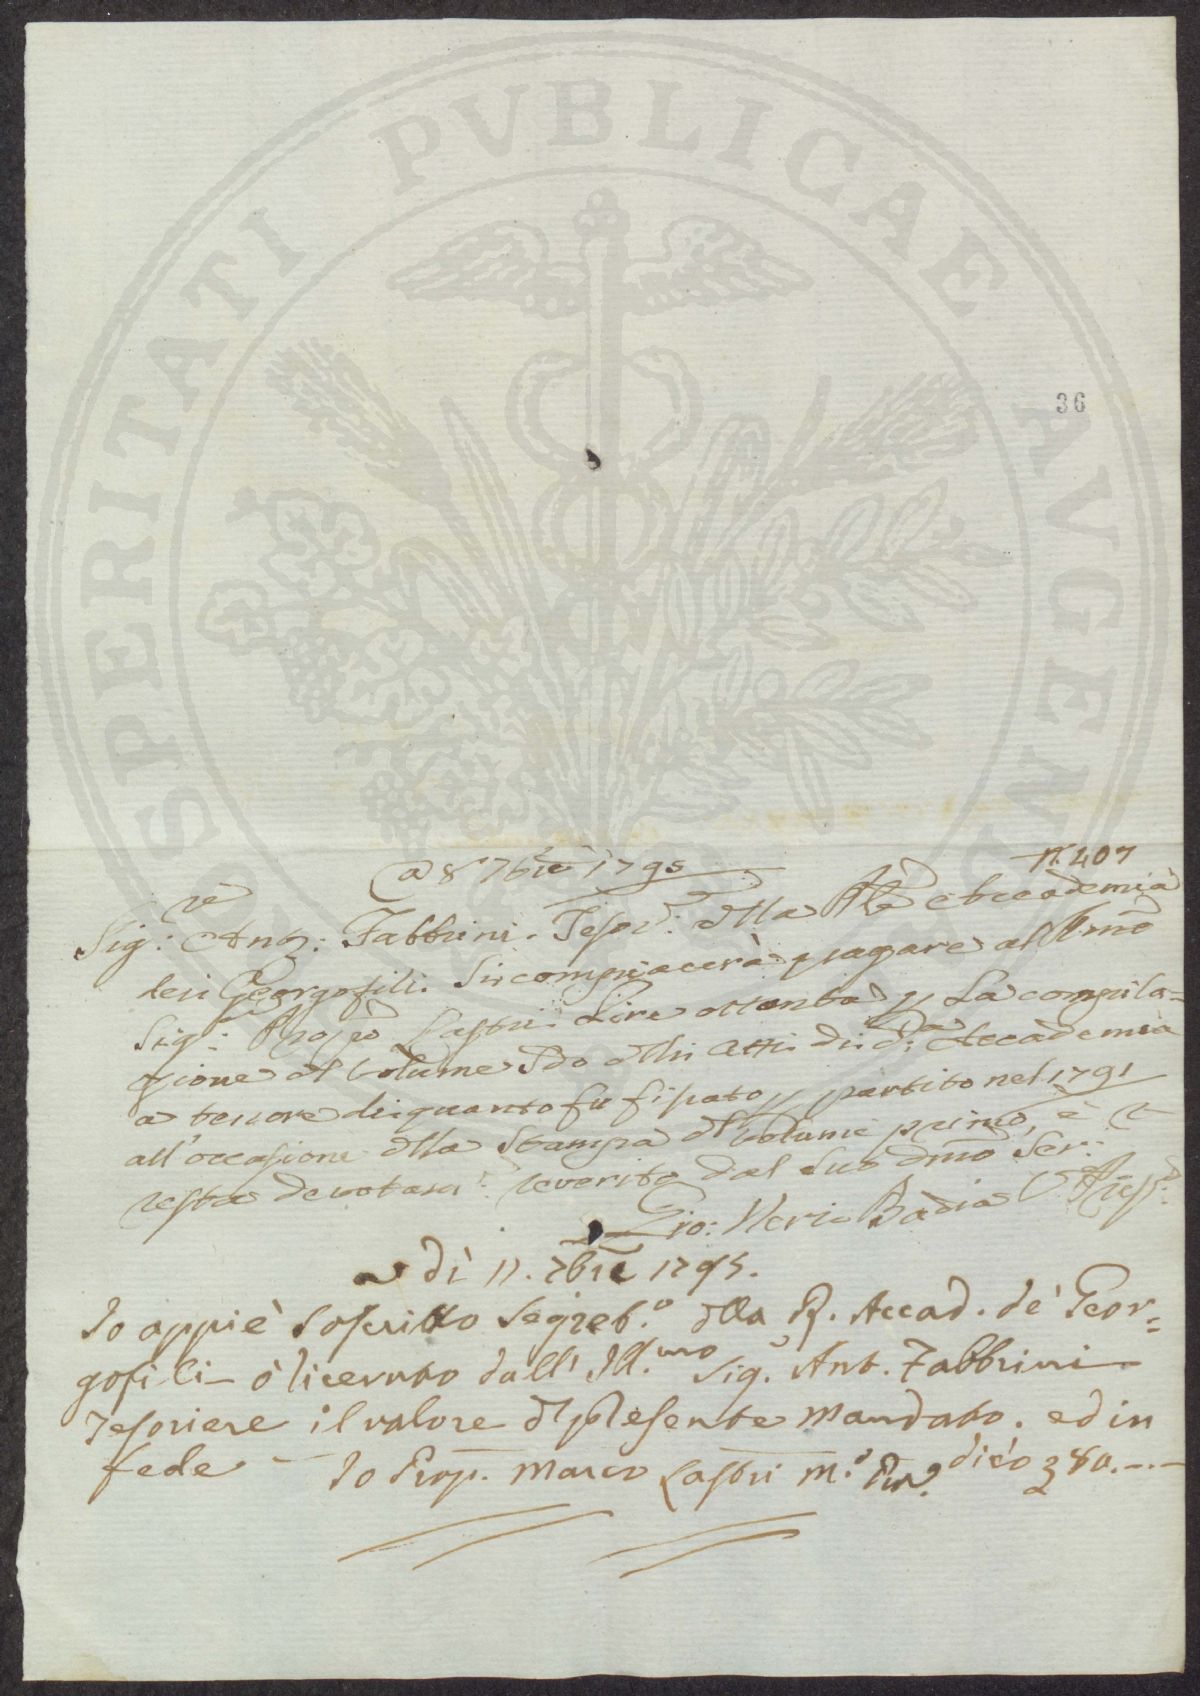 PROSPERITATI PVBLICAE AVGENDAE
36
N. 407
A 8 7bre 1795
Sig:re Ant: Fabbrini. Tesor: della Rle Accademia
dei Georgofili. Si compiacerà pagare al Rmo
Sig: Propo Lastri Lire ottanta p La compila=
zione del Volume 3do delli Atti di d:ta Accademia
a tenore di quanto fu fissato p partito nel 1791
all'occasione della Stampa del Volume primo, e
resta devotam: reverito dal Suo Dmo Ser:
Gio: Neri Badia
a dì 11. 7bre 1795.
Io appiè soscritto Segret.o della R. Accad. de' Geor=
gofili ò ricevuto dall' Ill.mo Sig. Ant. Fabbrini
Tesoriere il valore del presente mandato. ed in
fede Io Prop. Marco Lastri m.o pp.a dico £ 80.-.-